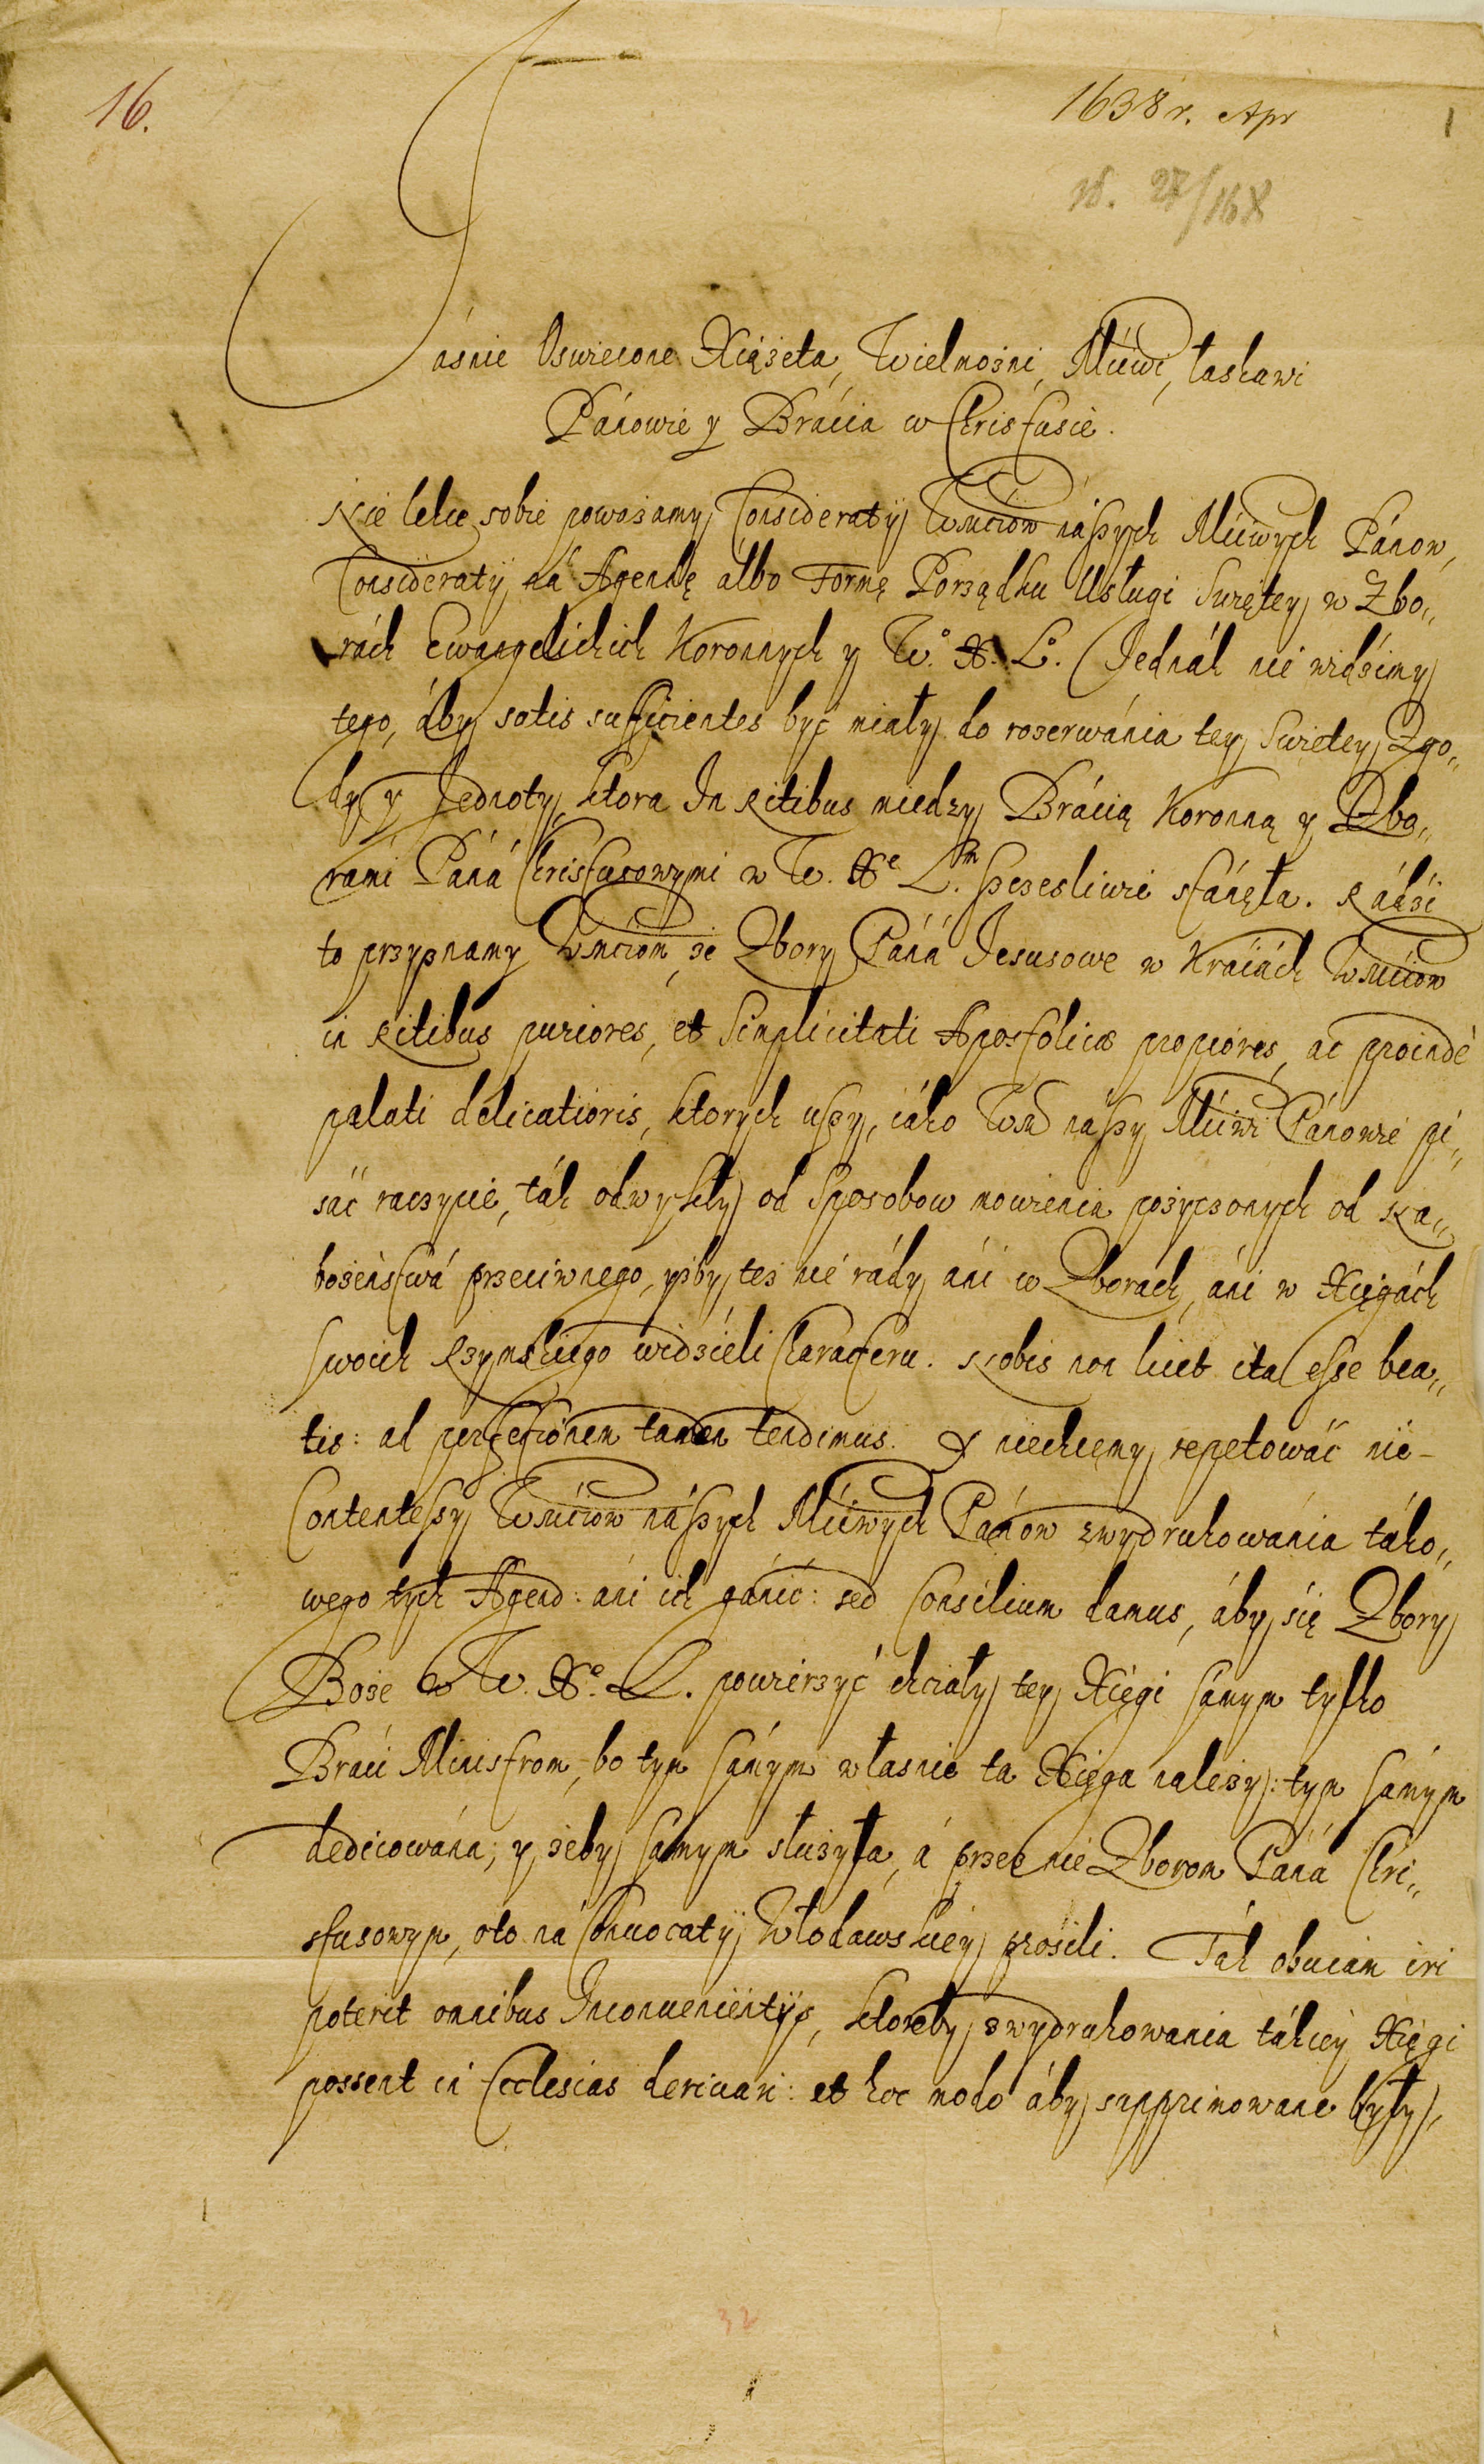 16.
1638 r. Apr
1
Jásnie Oswiecone Xiążeta, Wielmożni, Mćiwi, łaskawi
Pánowie y Brácia w Christusie.
Nie lekce sobie poważamy Consideratÿ Wmćiow nászych Mćiwych Pánow,
Consideratÿ ná Agendę álbo Formę Porządku Usługi Swiętey w Zbo„
rách Ewangelickich Koronnych y W.° X. L°. Jednák nie widzimy
tego, áby satis sufficientes być miały do rozerwánia tey Swietey Zgo„
dy y Jednoty, ktora In Ritibus miedzy Brácią Koronną y Zbo„
rámi Páná Christusowymi w W. Xᵉ Lᵐ. szczesliwie stánęła. Rádzi
to przyznamy Wmćiom, że Zbory Páná Jesusowe w Kráiách Wmćiow
in Ritibus puriores, et Simplicitati Apostolicæ propiores, ac proindè
palati delicatioris, ktorych uszy, iáko Wm nászy Mćiwi Pánowie pi„
sáć raczycie, ták odwykły od Sposobow mowienia pożyczonych od Na„
bożeństwá przeciwnego, yżby też nie rády áni w Zborách, áni w Xięgách
swoich Rzymskiego widzieli Characteru. Nobis non licet ita esse bea„
tis: ad perfectionem tamen tendimus. Y niechcemy repetowáć nie-
Contentessy Wmćiow nászych Mćiwych Pánow zwydrukowánia táko„
wego tych Agend: áni ich gánić: sed Consilium damus, áby się Zbory
Boże w W. X°. L. powierzyć chciały tey Xięgi samym tylko
Bráci Ministrom, bo tym sámym własnie ta Xięga należy: tym sámym
dedicowána, y żeby sámym służyła, á przez nie Zborom Páná Chri„
stusowym, oto ná Conuocatÿ Włodawskiey prosili. Ták obuiam iri
poterit omnibus Inconuenientÿs, ktoreby zwydrukowania tákiey Xięgi
possent in Ecclesias deriuari: et hoc modo áby supprimowane były,
32